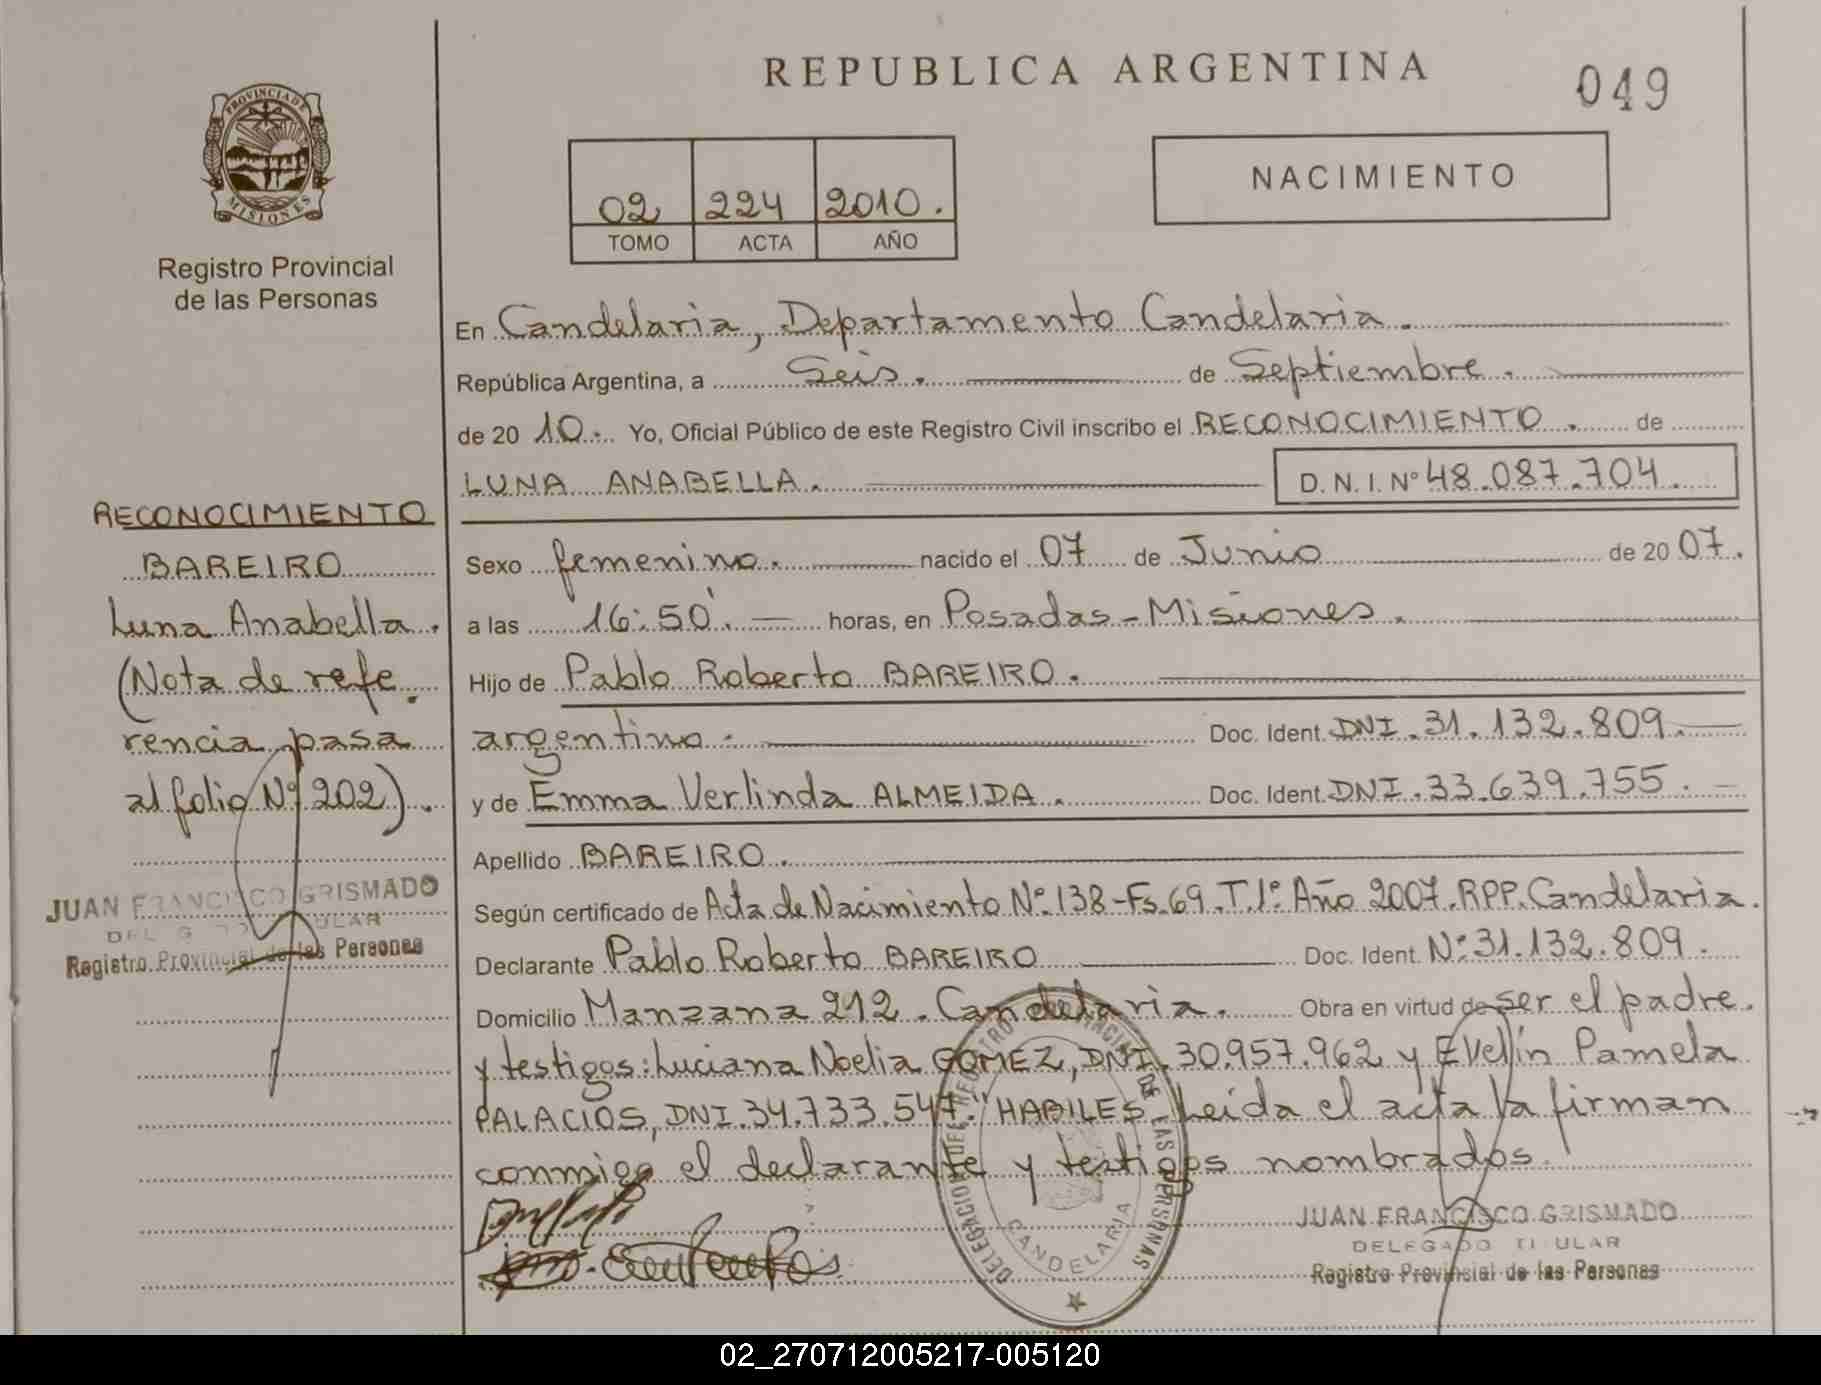 REPUBLICA ARGENTINA
049
PROVINCIA DE
MISIONES
Registro Provincial
de las Personas
02 224 2010.
TOMO ACTA AÑO
NACIMIENTO
En Candelaria, Departamento Candelaria.
República Argentina, a Seis. de Septiembre.
de 20 10. Yo, Oficial Público de este Registro Civil inscribo el RECONOCIMIENTO. de
LUNA ANABELLA. D.N.I. Nº 48.087.704.
Sexo femenino. nacido el 07 de Junio de 20 07.
a las 16:50'. horas, en Posadas - Misiones.
Hijo de Pablo Roberto BAREIRO.
argentino. Doc. Ident. DNI.31.132.809.
y de Emma Verlinda ALMEIDA. Doc. Ident. DNI.33.639.755.
Apellido BAREIRO.
Según certificado de Acta de Nacimiento Nº 138-Fs.69.T.1º Año 2007.RPP.Candelaria.
Declarante Pablo Roberto BAREIRO Doc. Ident. Nº 31.132.809.
Domicilio Manzana 212. Candelaria. Obra en virtud de ser el padre.
y testigos: Luciana Noelia GOMEZ, DNI.30.957.962 y Evelín Pamela
PALACIOS, DNI.34.733.547. "HABILES. Leída el acta la firman
conmigo el declarante y testigos nombrados.
RECONOCIMIENTO
BAREIRO
Luna Anabella.
(Nota de refe
rencia pasa
al folio Nº 202).
JUAN FRANCISCO GRISMADO
Registro Provincial de las Personas
DELEGACION DEL REGISTRO PROVINCIAL DE LAS PERSONAS
CANDELARIA
JUAN FRANCISCO GRISMADO
DELEGADO TITULAR
Registro Provincial de las Personas
02_270712005217-005120